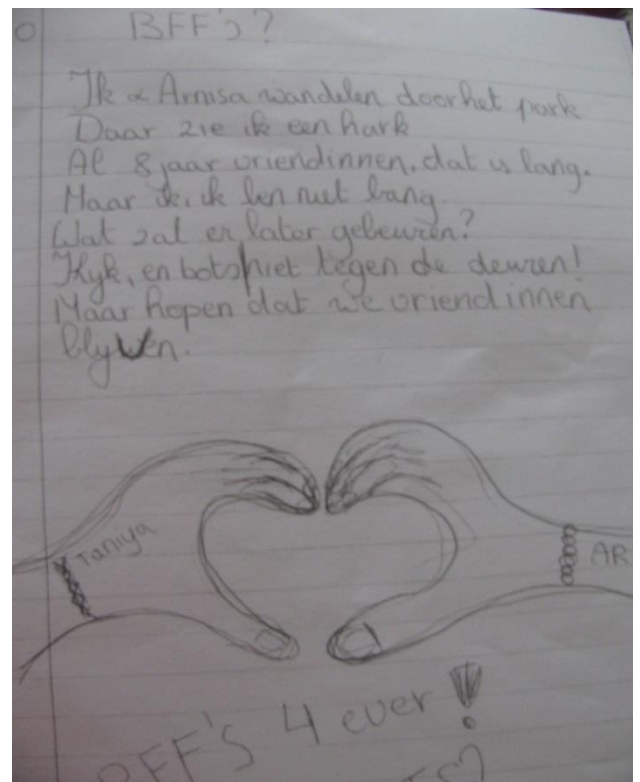 BFF's?
Ik & Arnisa wandelen door het park
Daar zie ik een hark
Al 8 jaar vriendinnen, dat is lang.
Maar ik, ik ben niet bang
Wat zal er later gebeuren?
Kyk, en bots niet tegen de deuren!
Maar hopen dat we vriendinnen
blyven.
Taniya
AR
BFF's 4 ever!